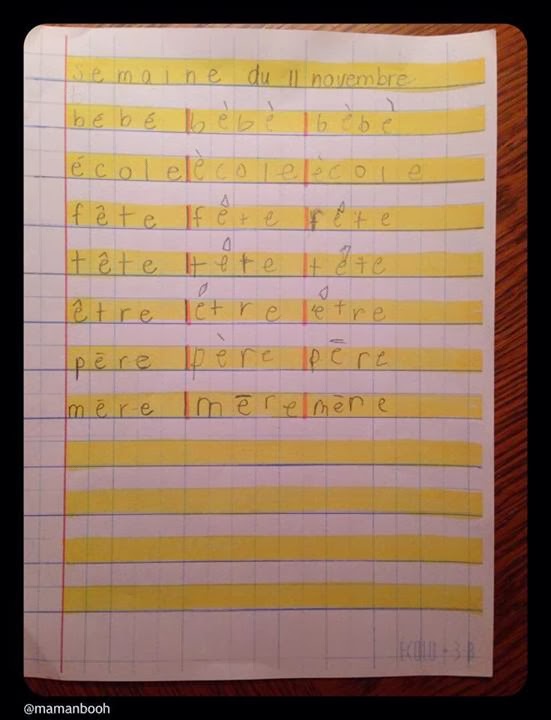 semaine du 11 novembre
bébé bèbè bèbè
école ècole ècole
fête fête fête
tête tête tête
être être être
père père pēre
mēre mēre mēre
@mamanbooh